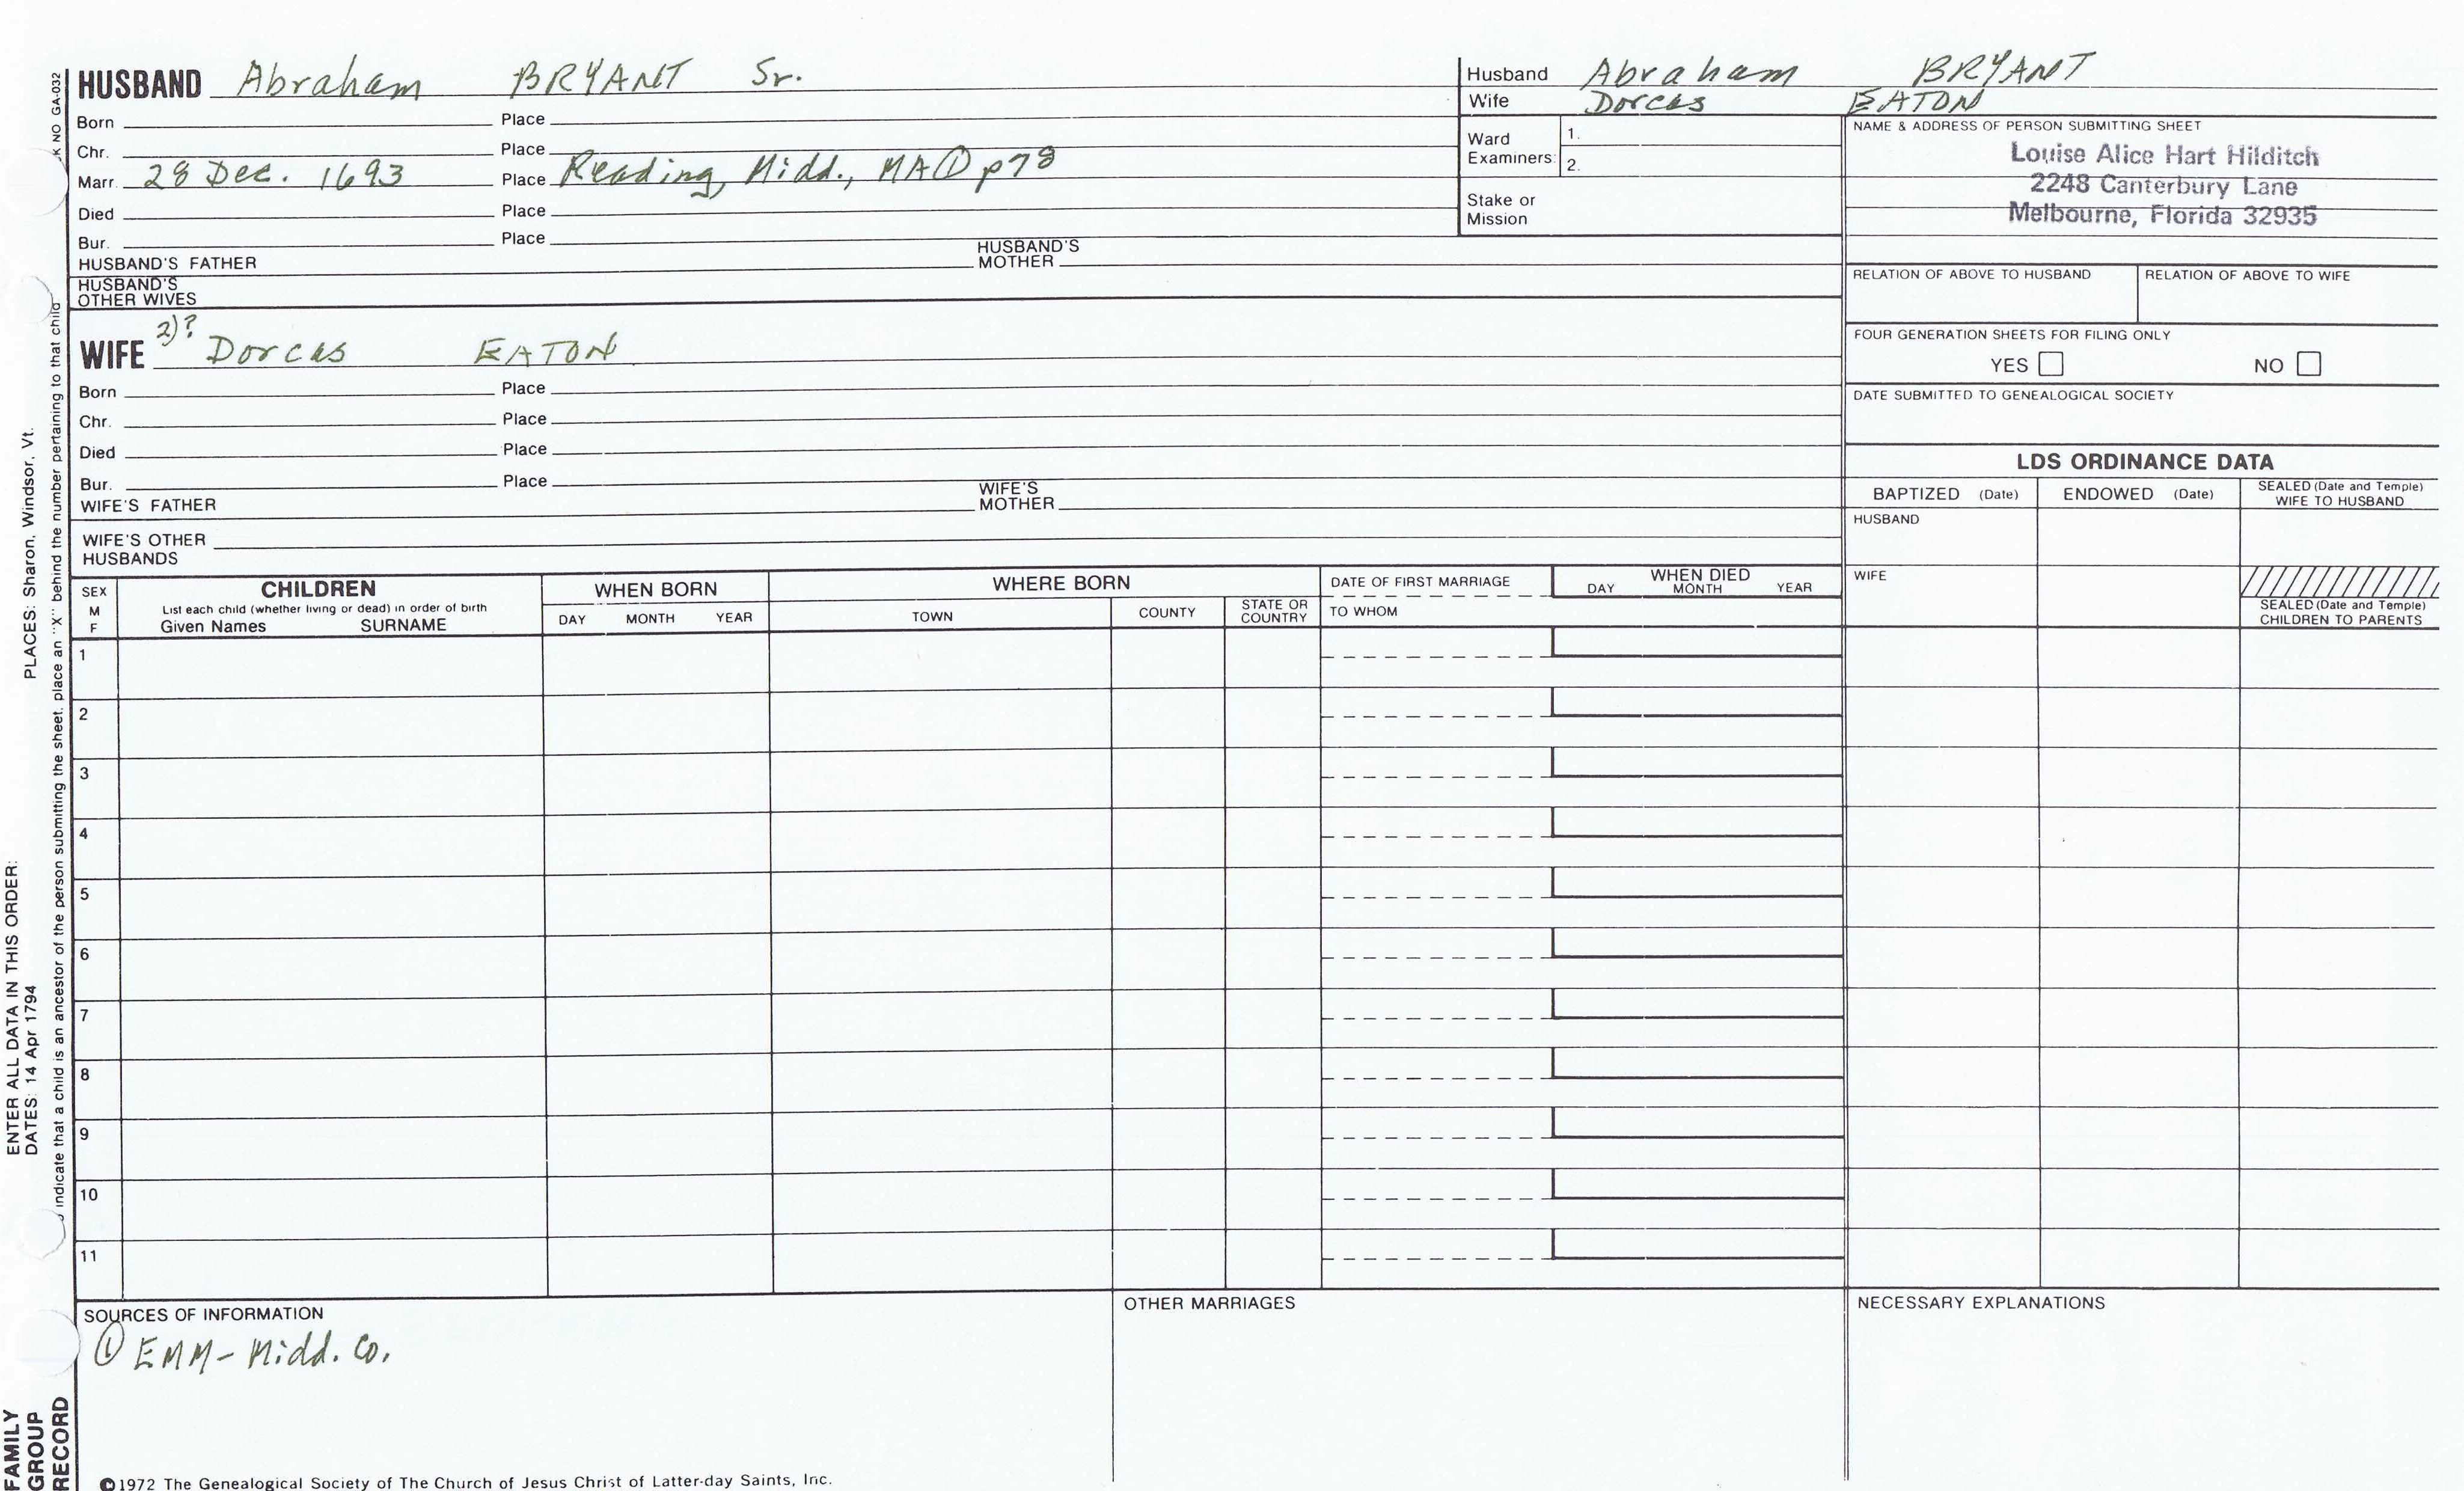 HUSBAND Abraham BRYANT Sr.
Born Place
Chr. Place
Marr. 28 Dec. 1693 Place Reading, Midd., MA ① p78
Died Place
Bur. Place
HUSBAND'S FATHER HUSBAND'S MOTHER
HUSBAND'S OTHER WIVES
WIFE 2)? Dorcas EATON
Born Place
Chr. Place
Died Place
Bur. Place
WIFE'S FATHER WIFE'S MOTHER
WIFE'S OTHER HUSBANDS
Husband Abraham BRYANT
Wife Dorcas EATON
Ward Examiners: 1.
2.
Stake or Mission
NAME & ADDRESS OF PERSON SUBMITTING SHEET
Louise Alice Hart Hilditch
2248 Canterbury Lane
Melbourne, Florida 32935
RELATION OF ABOVE TO HUSBAND RELATION OF ABOVE TO WIFE
FOUR GENERATION SHEETS FOR FILING ONLY
YES NO
DATE SUBMITTED TO GENEALOGICAL SOCIETY
LDS ORDINANCE DATA
BAPTIZED (Date) ENDOWED (Date) SEALED (Date and Temple) WIFE TO HUSBAND
HUSBAND
WIFE
SEALED (Date and Temple) CHILDREN TO PARENTS
SEX M F
CHILDREN
List each child (whether living or dead) in order of birth
Given Names SURNAME
WHEN BORN
DAY MONTH YEAR
WHERE BORN
TOWN COUNTY STATE OR COUNTRY
DATE OF FIRST MARRIAGE
TO WHOM
WHEN DIED
DAY MONTH YEAR
1
2
3
4
5
6
7
8
9
10
11
SOURCES OF INFORMATION
① EMM - Midd. Co.
OTHER MARRIAGES
NECESSARY EXPLANATIONS
©1972 The Genealogical Society of The Church of Jesus Christ of Latter-day Saints, Inc.
FAMILY
GROUP
RECORD
ENTER ALL DATA IN THIS ORDER:
DATES: 14 Apr 1794 PLACES: Sharon, Windsor, Vt.
indicate that a child is an ancestor of the person submitting the sheet, place an "X" behind the number pertaining to that child
K NO GA-032